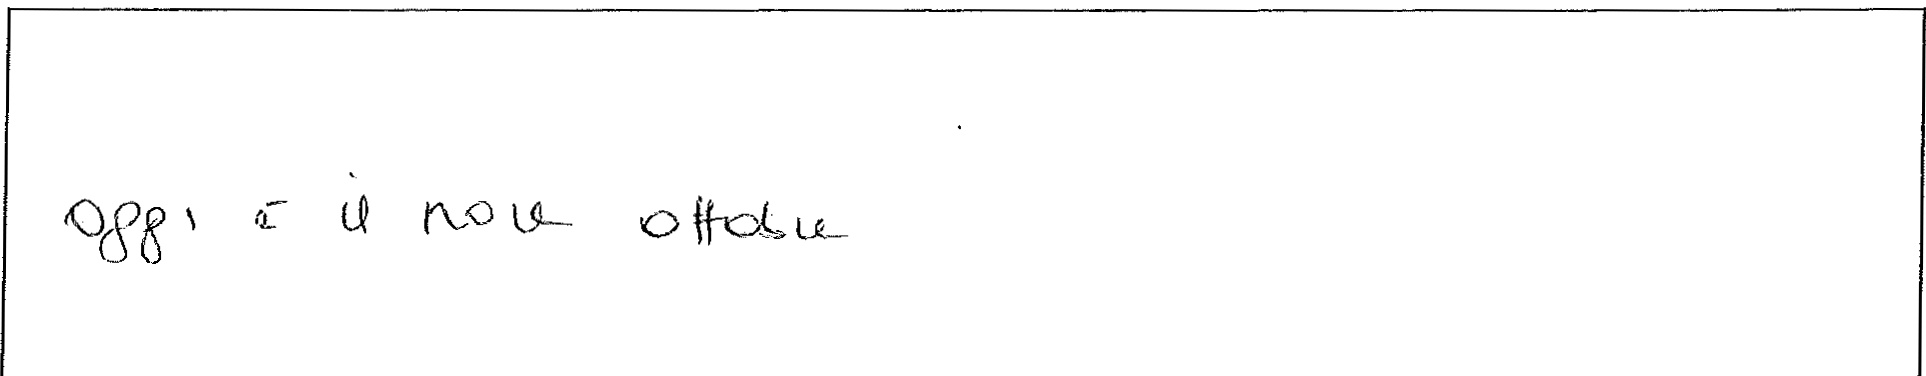 oggi è il nove ottobre